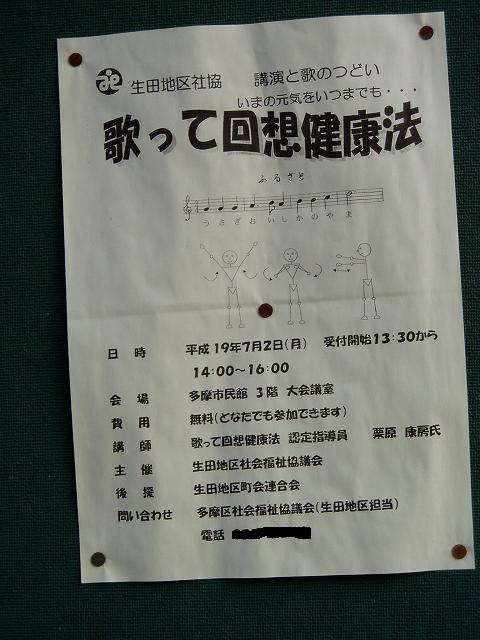 生田地区社協　講演と歌のつどい
いまの元気をいつまでも・・・
歌って回想健康法
ふるさと
うさぎおいしかのやま
日時　平成19年7月2日(月)　受付開始13:30から
14:00～16:00
会場　多摩市民館 3階 大会議室
費用　無料(どなたでも参加できます)
講師　歌って回想健康法 認定指導員　栗原 康房氏
主催　生田地区社会福祉協議会
後援　生田地区町会連合会
問い合わせ　多摩区社会福祉協議会(生田地区担当)
電話